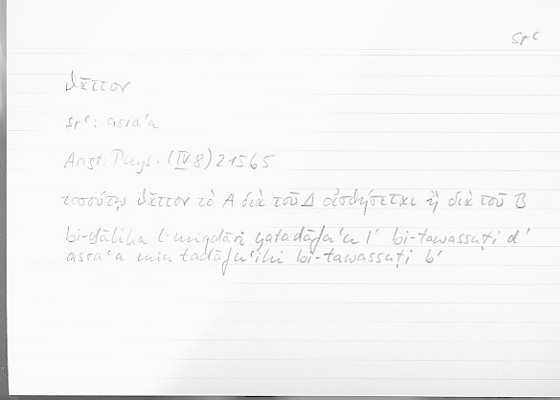 srʿ
θᾶττον
srʿ: asraʿa
Arist. Phys. (IV 8) 215b5
τοσούτῳ θᾶττον τὸ Α διὰ τοῦ Δ ὠσθήσεται ἢ διὰ τοῦ Β
bi-ḏālika l-miqdāri yatadāfaʿu ʾ bi-tawassuṭi dʾ
asraʿa min tadāfuʿihi bi-tawassuṭi bʾ